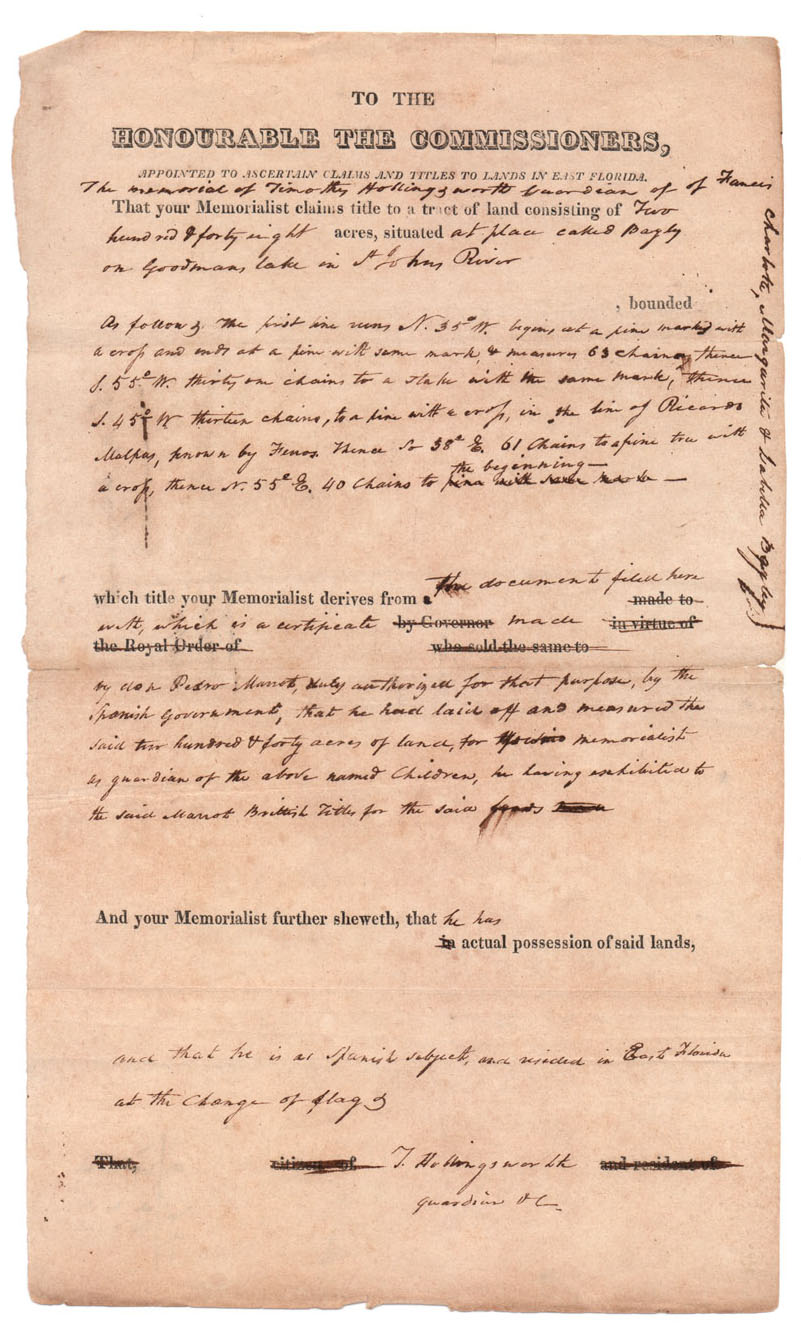 TO THE
HONOURABLE THE COMMISSIONERS,
APPOINTED TO ASCERTAIN CLAIMS AND TITLES TO LANDS IN EAST FLORIDA.
The memorial of Timothy Hollingsworth Guardian of of Francis
Charlotte, Margarita & Bagley
That your Memorialist claims title to a tract of land consisting of Two
hundred & forty eight acres, situated at place called Bagly
on Goodmans lake in St Johns River
, bounded
As follows The first line runs N. 35° W. begins at a pine marked with
a cross and ends at a pine with same mark, & measures 63 chains, thence
S. 55° W. thirty one chains to a stake with the same mark, thence
S. 45° W thirteen chains, to a pine with a cross, in the line of Ricardo
Malpas, known by Thence So 38° E. 61 Chains to a pine tree with
a cross, thence N. 55° E. 40 Chains to the beginning—
pine with same mark —
which title your Memorialist derives from a The document filed here
made to
with, which is a certificate by Governor made in virtue of
the Royal Order of who sold the same to
by don Pedro Marrot, duly authorized for that purpose, by the
Spanish Government, that he had laid off and measured the
said two hundred & forty acres of land, for memorialist
as guardian of the above named Children, he having exhibited to
the said Marrot Brittish Titles for the said
And your Memorialist further sheweth, that he has
in actual possession of said lands,
and that he is a Spanish subject, and resided in East Florida
at the Change of flags
That, citizen of T. Hollingsworth and resident of
guardian &C